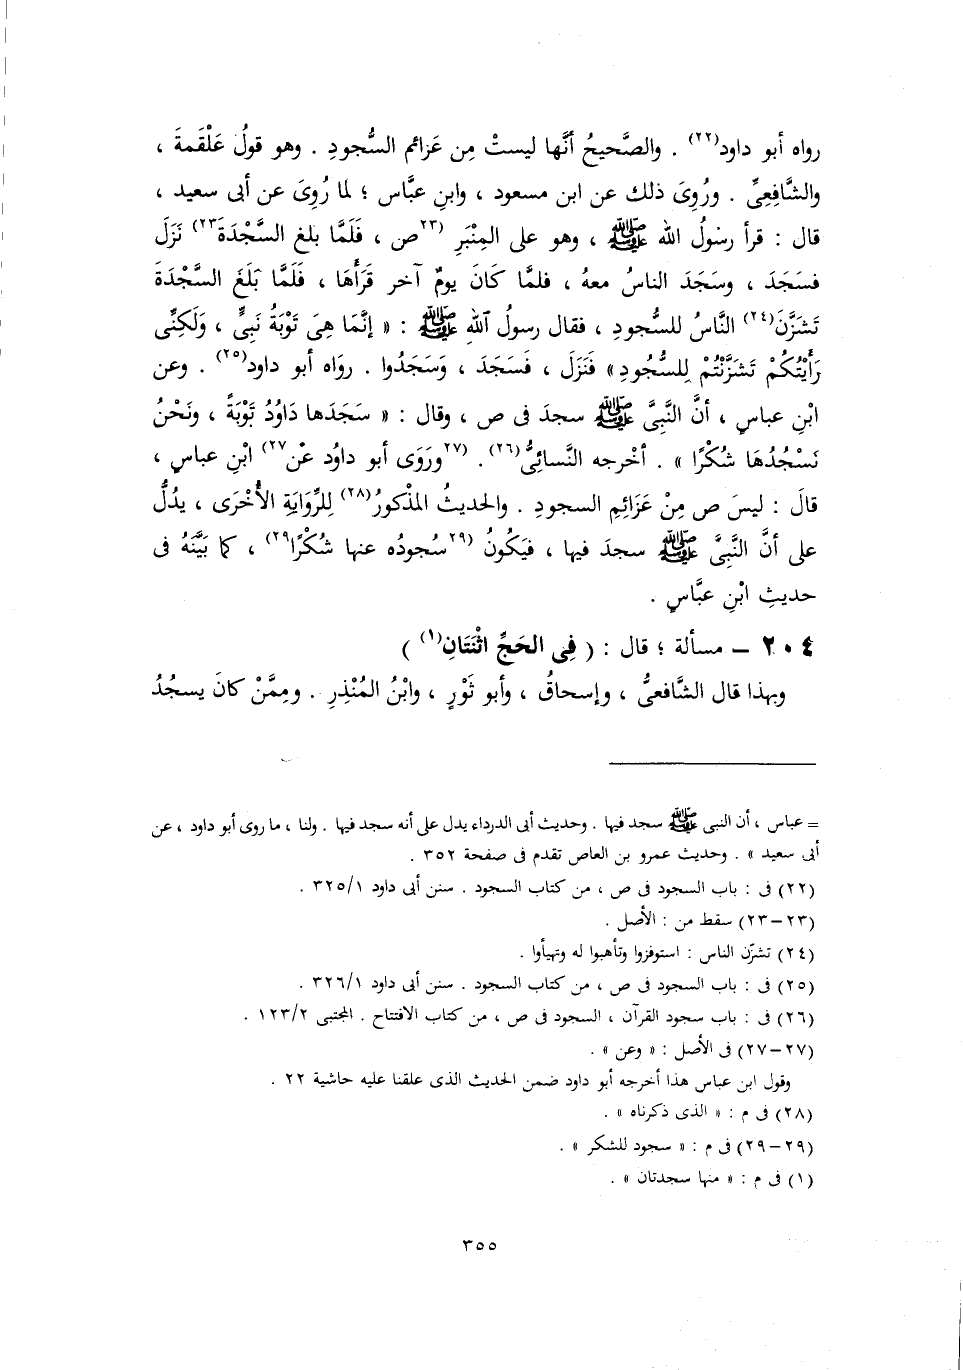 رواه أبو داود(٢٢) . والصَّحيحُ أنَّها ليستْ مِن عَزائم السُّجودِ . وهو قولُ عَلْقَمةَ ،
والشَّافِعِيِّ . ورُوِىَ ذلك عن ابن مسعود ، وابنِ عبَّاس ؛ لما رُوِىَ عن أبى سعيد ،
قال : قرأ رسولُ الله ﷺ ، وهو على المِنْبَرِ (٢٣ص ، فَلَمَّا بلغ السَّجْدَةَ٢٣) نَزَلَ
فسَجَدَ ، وسَجَدَ الناسُ معهُ ، فلمَّا كَانَ يومٌ آخر قَرَأَهَا ، فَلَمَّا بَلَغَ السَّجْدَةَ
تَشَزَّنَ(٢٤) النَّاسُ للسُّجودِ ، فقال رسولُ اللهِ ﷺ : « إنَّمَا هِىَ تَوْبَةُ نَبِىٍّ ، وَلَكِنِّى
رَأَيْتُكُمْ تَشَزَّنْتُمْ لِلسُّجُودِ» فَنَزَلَ ، فَسَجَدَ ، وَسَجَدُوا . رَواه أبو داود(٢٥) . وعن
ابْنِ عباسٍ ، أنَّ النَّبِىَّ ﷺ سجدَ فى ص ، وقال : « سَجَدَها دَاوُدُ تَوْبَةً ، ونَحْنُ
نَسْجُدُهَا شُكْرًا » . أخْرجه النَّسائِىُّ(٢٦) . (٢٧ورَوَى أبو داوُد عنْ٢٧) ابْنِ عباسٍ ،
قالَ : ليسَ ص مِنْ عَزَائِمِ السجودِ . والحديثُ المذْكورُ(٢٨) لِلرِّوَايَةِ الأُخْرَى ، يدُلُّ
على أنَّ النَّبِىَّ ﷺ سجدَ فيها ، فيَكُونُ (٢٩سُجودُه عنها شُكْرًا٢٩) ، كما بَيَّنَهُ فى
حديثِ ابْنِ عبَّاسٍ .
٢٠٤ – مسألة ؛ قال : ( فِى الحَجِّ اثْنَتَانِ(١) )
وبهذا قال الشَّافعىُّ ، وإسحاقُ ، وأبو ثَوْرٍ ، وابْنُ المُنْذِرِ . ومِمَّنْ كانَ يسجُدُ
= عباس ، أن النبى ﷺ سجد فيها . وحديث أبى الدرداء يدل على أنه سجد فيها . ولنا ، ما روى أبو داود ، عن
أبى سعيد » . وحديث عمرو بن العاص تقدم فى صفحة ٣٥٢ .
(٢٢) فى : باب السجود فى ص ، من كتاب السجود . سنن أبى داود ٣٢٥/١ .
(٢٣–٢٣) سقط من : الأصل .
(٢٤) تشزّن الناس : استوفزوا وتأهبوا له وتهيأوا .
(٢٥) فى : باب السجود فى ص ، من كتاب السجود . سنن أبى داود ٣٢٦/١ .
(٢٦) فى : باب سجود القرآن ، السجود فى ص ، من كتاب الافتتاح . المجتبى ١٢٣/٢ .
(٢٧–٢٧) فى الأصل : « وعن » .
وقول ابن عباس هذا أخرجه أبو داود ضمن الحديث الذى علقنا عليه حاشية ٢٢ .
(٢٨) فى م : « الذى ذكرناه » .
(٢٩–٢٩) فى م : « سجود للشكر » .
(١) فى م : « منها سجدتان » .
٣٥٥